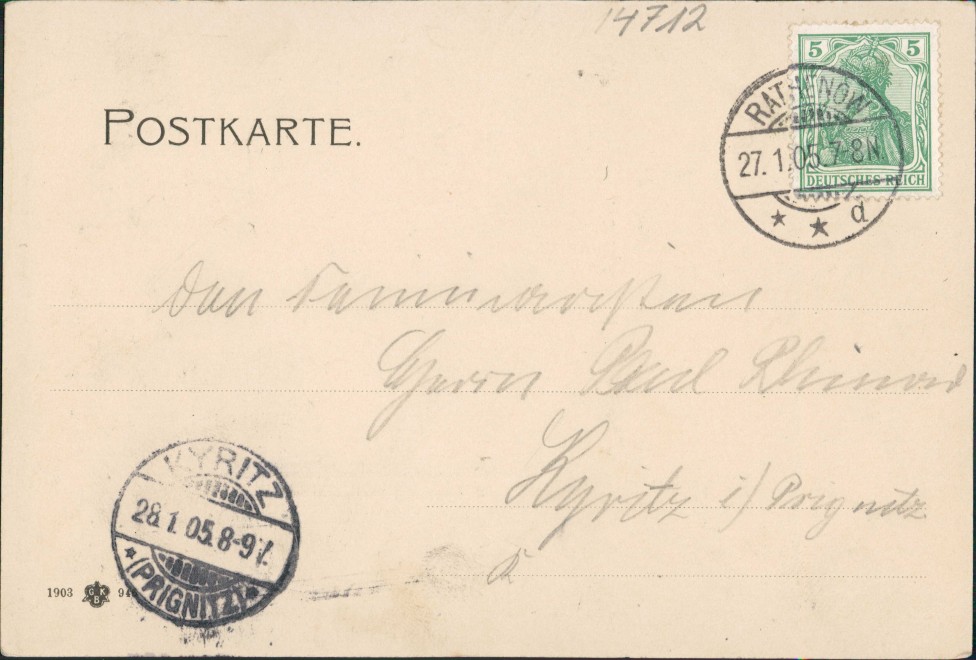 14712
POSTKARTE.
5 5
DEUTSCHES REICH
RATHENOW
27. 1. 05. 7-8N.
d
Herrn Paul
Kyritz i/ Prignitz
KYRITZ
28. 1. 05. 8-9V.
(PRIGNITZ)
1903 GKB 94